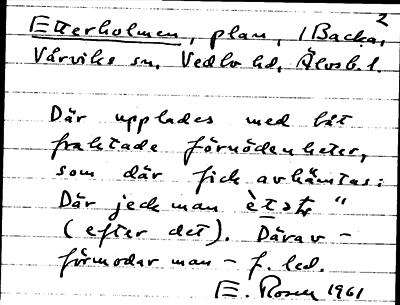 2
Etterholmen, plan, i Backa,
Vårviks sn, Vedbo hd, Älvsb. l.
Där upplades med båt
fraktade förnödenheter,
som där fick avhämtas:
Där jeck man
(efter det). Därav -
förmodar man - f. led.
E. Rosen 1961